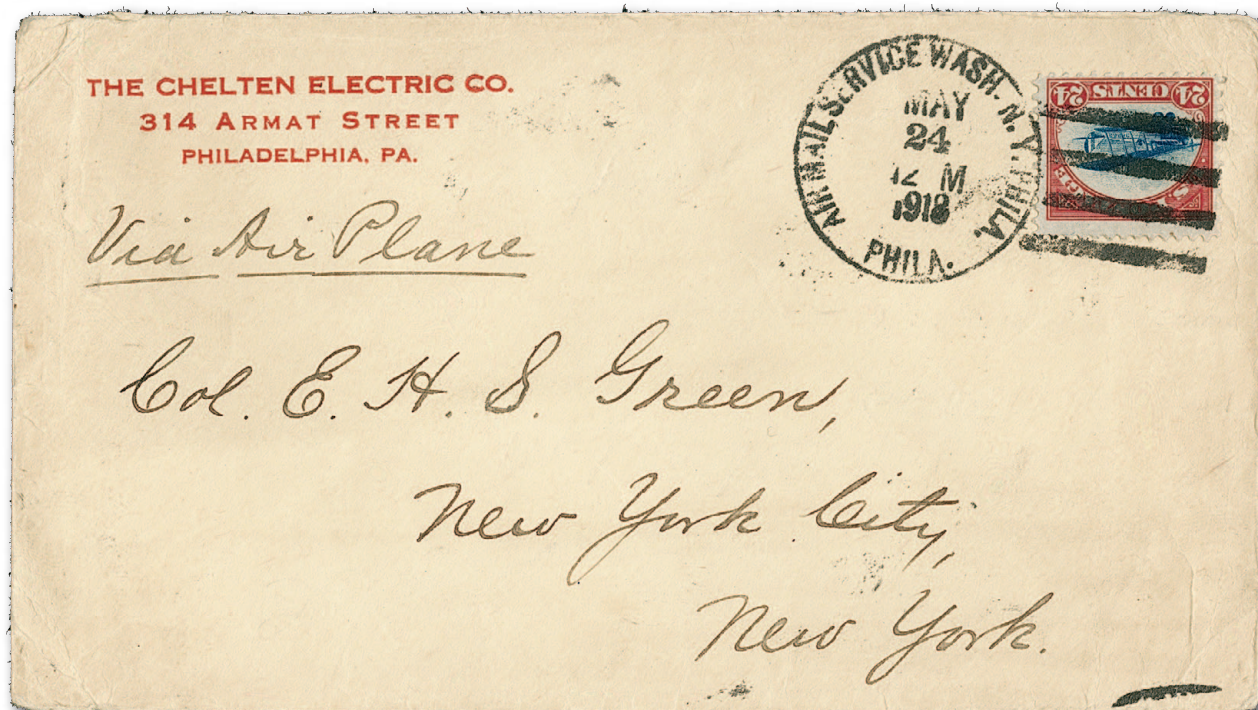 THE CHELTEN ELECTRIC CO.
314 ARMAT STREET
PHILADELPHIA, PA.
AIR MAIL SERVICE WASH. N.Y. PHILA.
MAY
24
12 M
1918
PHILA.
24 CENTS 24
Via Air Plane
Col. E. H. S. Green,
New York City,
New York.